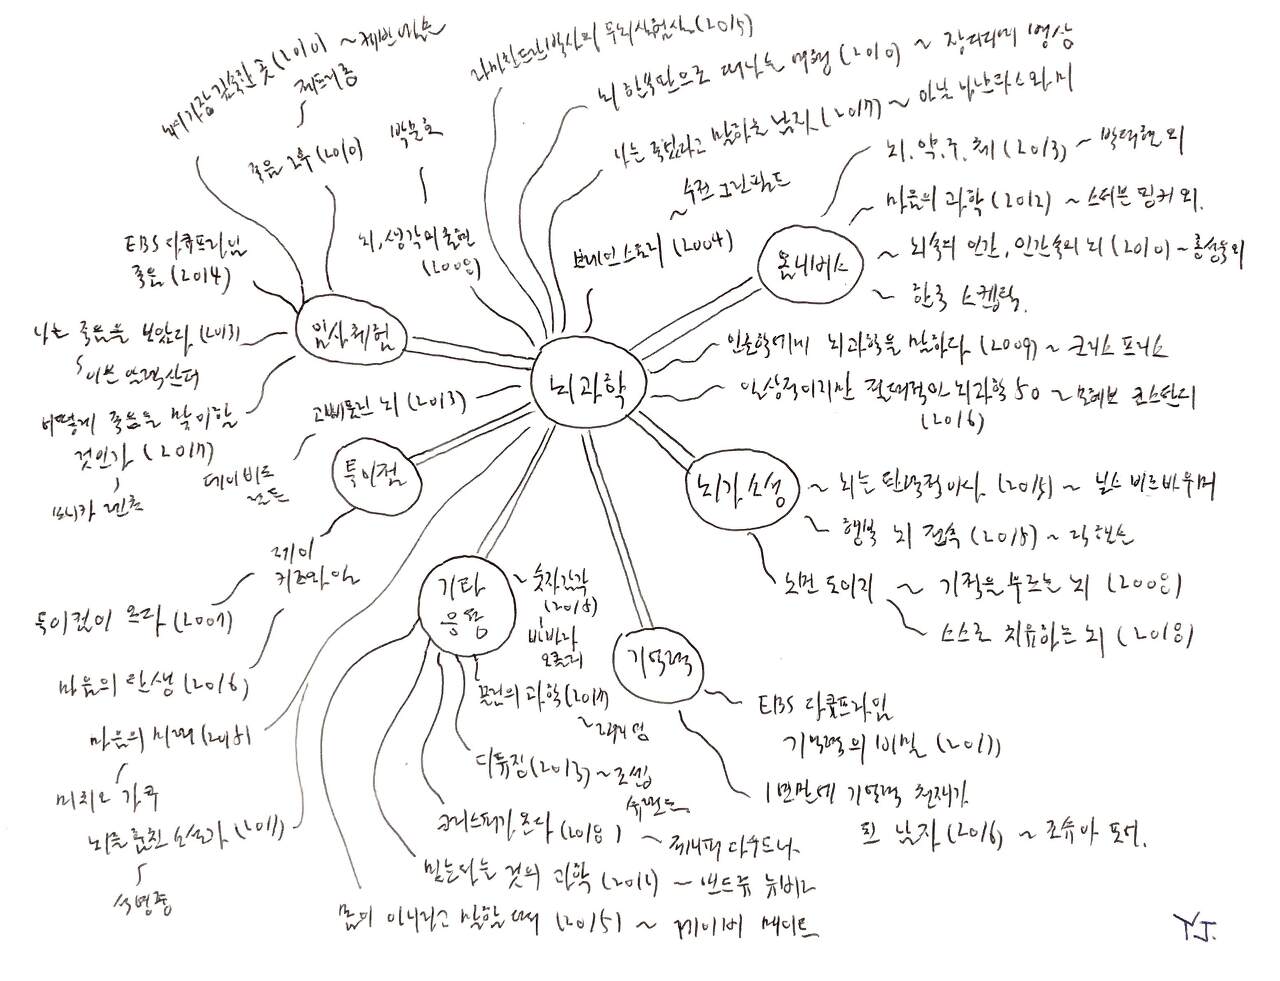 내가 잠깐 죽은 곳 (2011) ~ 케빈 넬슨
제프리 롱
죽음 그 후 (2010)
박문호
뇌, 생각의 출현
(2008)
라마찬드란 박사의 두뇌 실험실 (2015)
뇌 한복판으로 떠나는 여행 (2010) ~ 장 디디에 뱅상
나는 죽었다고 말하는 남자 (2017) ~ 아닐 아난타스와미
수전 그린필드
브레인 스토리 (2004)
EBS 다큐프라임
죽음 (2014)
나는 죽음을 보았다 (2013)
이븐 알렉산더
어떻게 죽음을 맞이할
것인가 (2017)
모니카 렌츠
임사체험
뇌과학
고삐 풀린 뇌 (2013)
데이비드
린든
올리버스
뇌.약.구.체 (2013) ~ 박태현 외
마음의 과학 (2012) ~ 스티븐 핑커 외.
뇌속의 인간, 인간속의 뇌 (2010) ~ 홍성욱 외
~ 한국 스켑틱.
인문학에게 뇌과학을 말하다 (2009) ~ 크리스 프리스
일상적이지만 절대적인 뇌과학 50 ~ 모헤브 코스탄디
(2016)
뇌가소성
~ 뇌는 탄력적이다 (2015) ~ 닐스 비르바우머
~ 행복 뇌 접속 (2015) ~ 릭 핸슨
노먼 도이지 ~ 기적을 부르는 뇌 (2008)
스스로 치유하는 뇌 (2018)
특이점
레이
커즈와일
특이점이 온다 (2007)
마음의 탄생 (2016)
마음의 미래 (2015)
미치오 가쿠
뇌를 훔친 소설가 (2011)
석영중
기타
응용
~ 숫자감각
(2015)
바바라
오클리
물건의 과학 (2017)
~
디퓨징 (2013) ~ 조셉
슈랜드
크리스퍼가 온다 (2018) ~ 제니퍼 다우드나
믿는다는 것의 과학 (2012) ~ 앤드류 뉴버그
몸이 아니라고 말할 때 (2015) ~ 게이버 메이트
기억력
EBS 다큐프라임
기억력의 비밀 (2011)
1년만에 기억력 천재가
된 남자 (2016) ~ 조슈아 포어.
YJ.